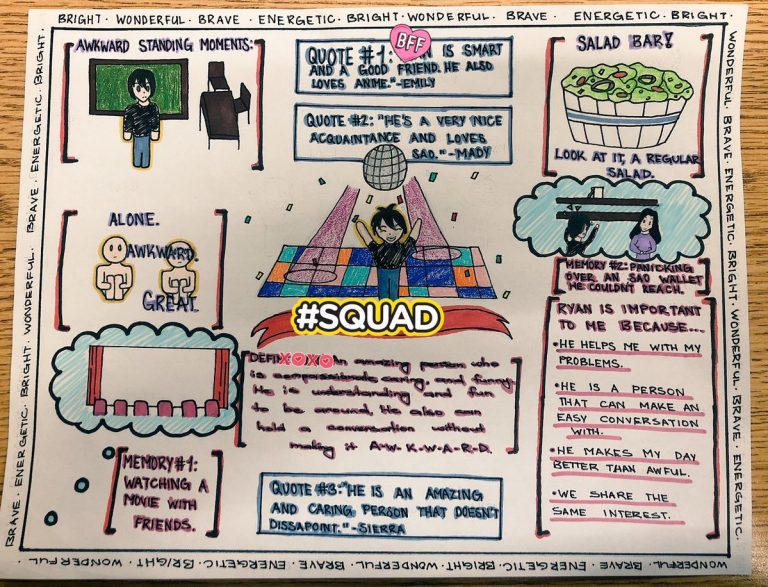 BRIGHT. WONDERFUL. BRAVE. ENERGETIC. BRIGHT. WONDERFUL. BRAVE. ENERGETIC. BRIGHT.
AWKWARD STANDING MOMENTS:
BFF
QUOTE #1: IS SMART
AND A GOOD FRIEND. HE ALSO
LOVES ANIME."-EMILY
QUOTE #2: "HE'S A VERY NICE
ACQUAINTANCE AND LOVES
SAO."-MADY
SALAD BAR!
LOOK AT IT, A REGULAR
SALAD.
ALONE.
AWKWARD.
GREAT.
#SQUAD
MEMORY #2: PANICKING
OVER AN SAO WALLET
HE COULDN'T REACH.
RYAN IS IMPORTANT
TO ME BECAUSE...
•HE HELPS ME WITH MY
PROBLEMS.
•HE IS A PERSON
THAT CAN MAKE AN
EASY CONVERSATION
WITH.
•HE MAKES MY DAY
BETTER THAN AWFUL.
•WE SHARE THE
SAME INTEREST.
XOXO An amazing person who
is compassionate, caring, and funny.
He is understanding and fun
to be around. He also can
hold a conversation without
making it A.W.K.W.A.R.D.
MEMORY #1:
WATCHING A
MOVIE WITH
FRIENDS.
QUOTE #3: "HE IS AN AMAZING
AND CARING PERSON THAT DOESN'T
DISSAPOINT."-SIERRA
WONDERFUL. BRAVE. ENERGETIC. BRIGHT. WONDERFUL. BRAVE. ENERGETIC. BRIGHT. WONDERFUL. BRAVE.
WONDERFUL. BRAVE. ENERGETIC. BRIGHT. WONDERFUL. BRAVE. ENERGETIC. BRIGHT. WONDERFUL
BRAVE. ENERGETIC. BRIGHT. WONDERFUL. BRAVE. ENERGETIC. BRIGHT.